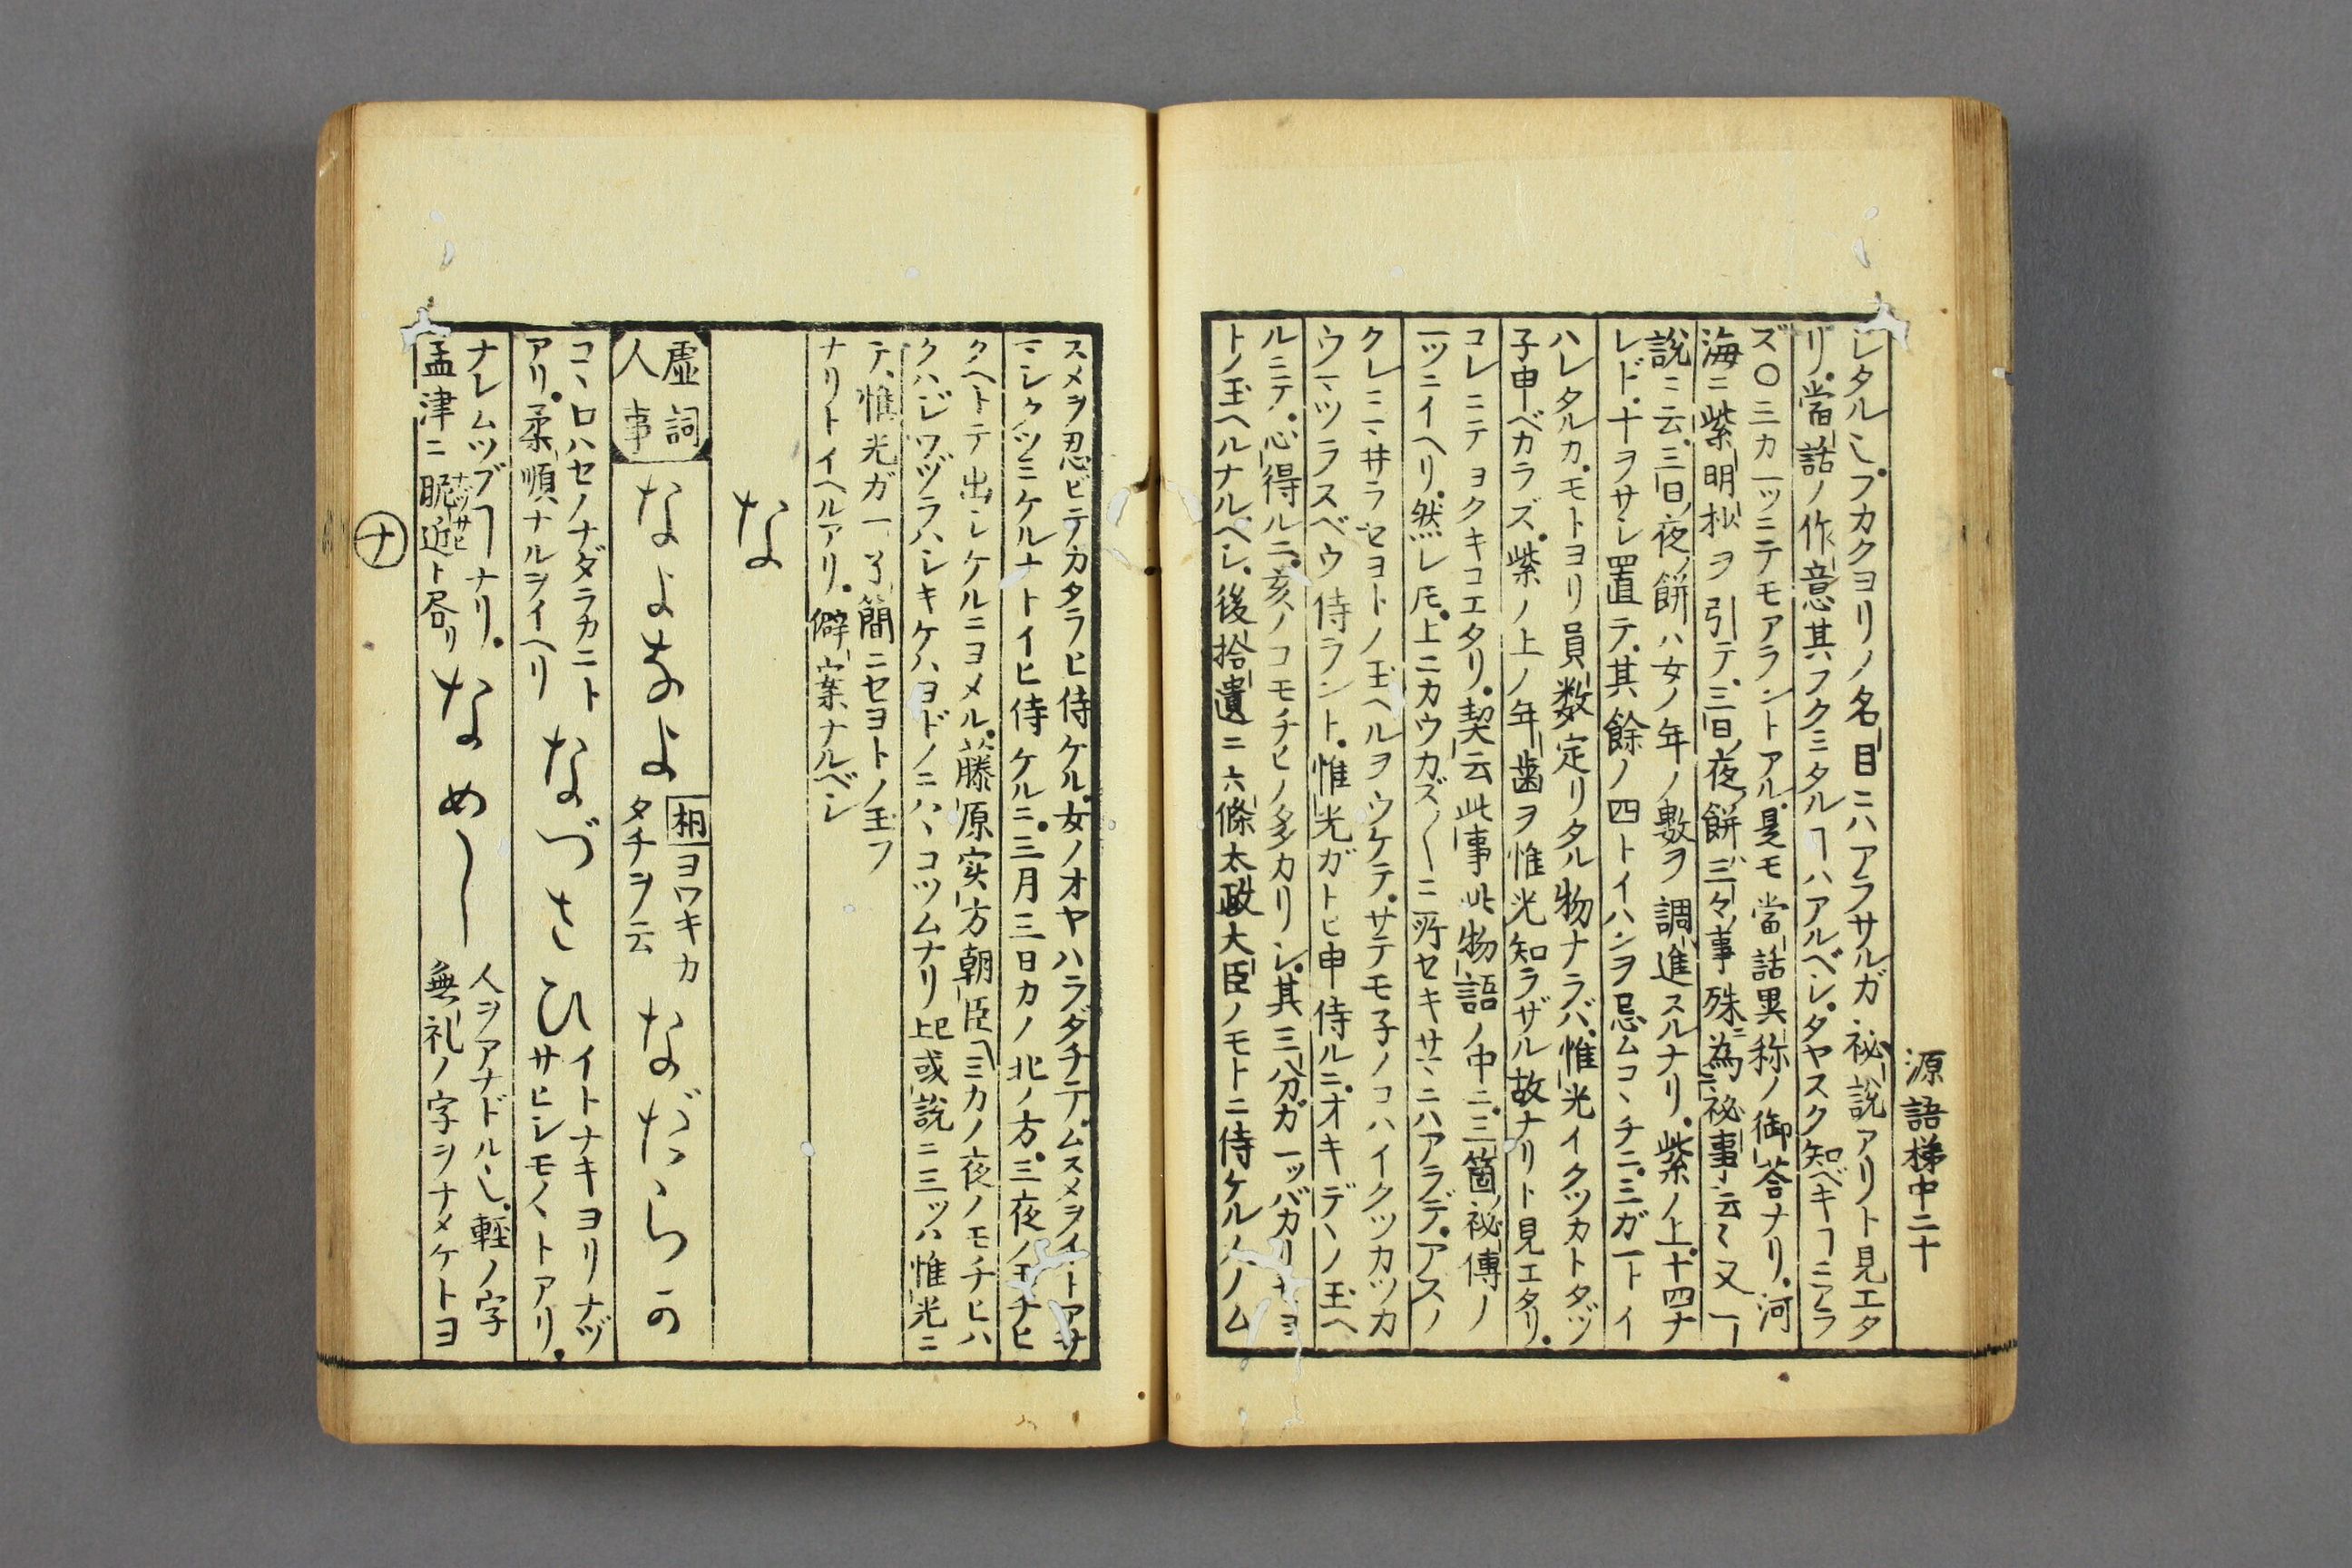 源語梯中二十
レタル乄フカクヨリノ名目ニハアラサルガ秘説アリト見エタ
リ當話ノ作意其フクミタルヿハアルベシタヤスク知ベキヿニアラ
ズ〇三カ一ツニテモアラントアル是モ當話異称ノ御荅ナリ河
海ニ紫明抄ヲ引テ三日夜餅三々事殊為秘事云々又一
説ニ云三日夜餅ハ女ノ年ノ數ヲ調進スルナリ紫ノ上十四ナ
レド十ヲサシ置テ其餘ノ四トイハンヲ忌ムコヽチニ三ガ一トイ
ハレタルカモトヨリ員数定リタル物ナラバ惟光イクツカトタヅ
子申ベカラズ紫ノ上ノ年歯ヲ惟光知ラザル故ナリト見エタリ
コレニテヨクキコエタリ契云此事此物語ノ中ニ三箇秘傳ノ
一ツニイヘリ然レ𪜈上ニカウカズ〱ニ所セキサマニハアラデアスノ
クレニマヰラセヨトノ玉ヘルヲウケテサテモ子ノコハイクツカツカ
ウマツラスベウ侍ラント惟光ガトヒ申侍ルニオキデヽノ玉ヘ
ルニテ心得ルニ亥ノコモチヒノ多カリシ其三分ガ一ツバカリセヨ
トノ玉ヘルナルベシ後拾遺ニ六條太政大臣ノモトニ侍ケル人ノム
スメヲ忍ビテカタラヒ侍ケル女ノオヤハラダチテムスメヲイトアサ
マシウツミケルナトイヒ侍ケルニ三月三日カノ北ノ方三夜ノモチヒ
クヘトテ出シケルニヨメル藤原実方朝臣〽ミカノ夜ノモチヒハ
クハジワヅラハシキケハヨドノニハヽコツムナリ上巳或説ニ三ツハ惟光ニ
テ惟光ガ一了簡ニセヨトノ玉フ
ナリトイヘルアリ僻案ナルベシ
な
虚詞
人事
なよなよ
相ヨワキカ
タチヲ云
なだらか
コヽロハセノナダラカニト
アリ柔順ナルヲイヘリ
なづさひ
イトナキヨリナヅ
サヒシモノトアリ
ナレムツブヿナリ
孟津ニ昵近ト居リ
ナヅサヒ
なめし
人ヲアナドル乄軽ノ字
無礼ノ字ヲナメケトヨ
ナ